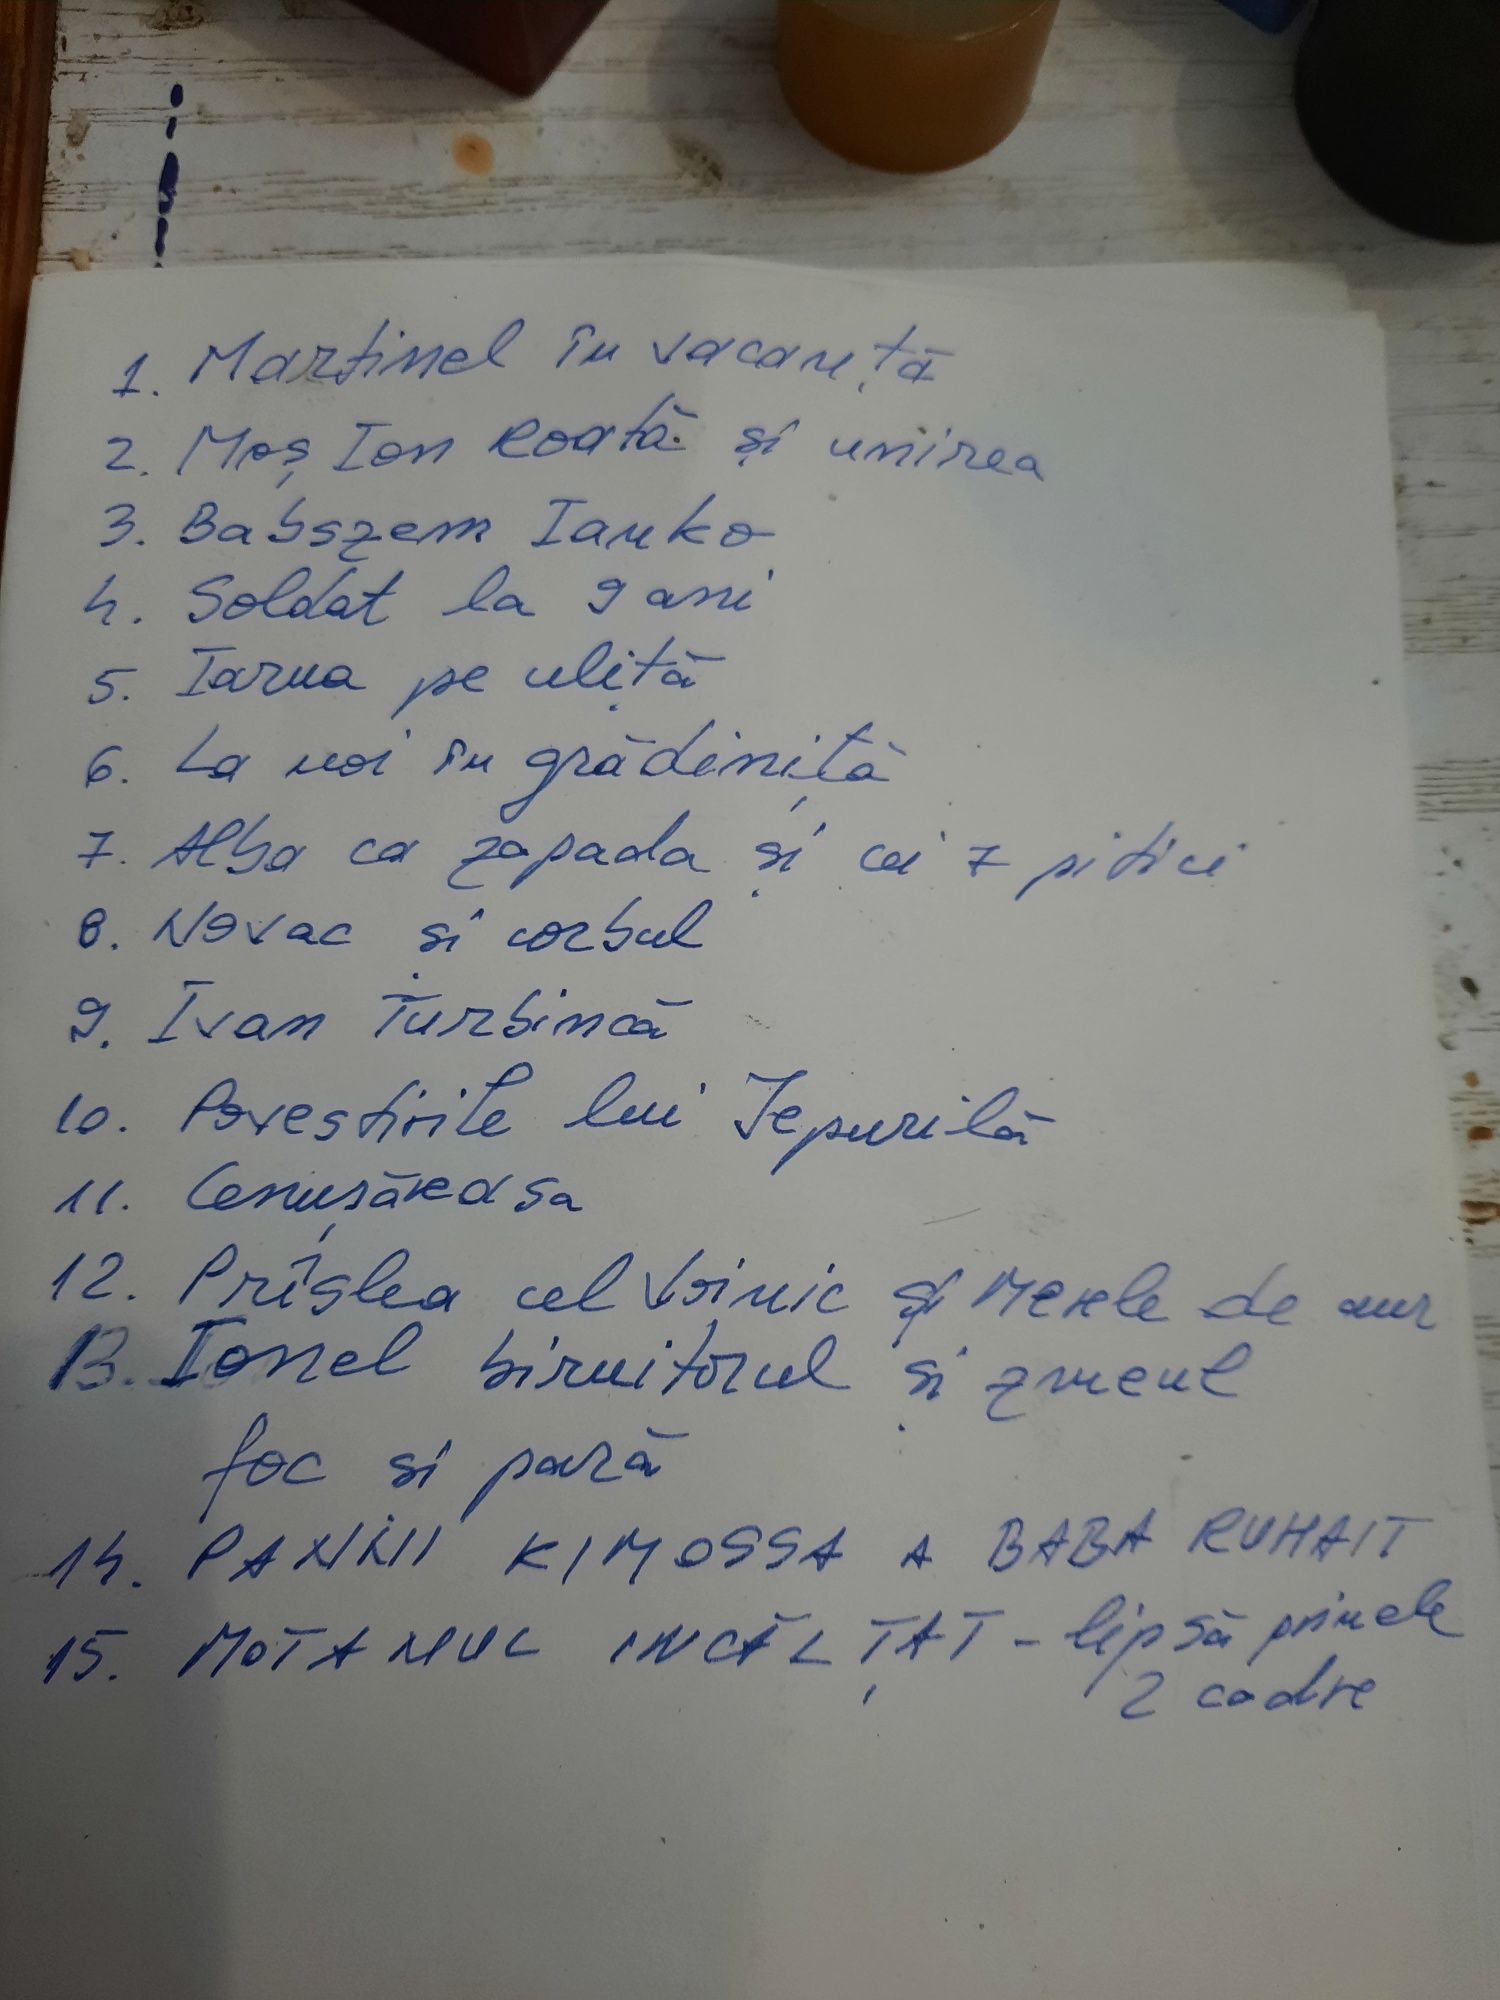 1. Martinel în vacanță
2. Moș Ion Roată și unirea
3. Babszem Ianko
4. Soldat la 9 ani
5. Iarna pe uliță
6. La noi în grădiniță
7. Alba ca zapada și cei 7 pitici
8. Novac și corbul
9. Ivan Turbincă
10. Povestirile lui Iepurilă
11. Cenușăreasa
12. Prîslea cel Voinic și Merele de aur
13. Ionel biruitorul și zmeul
foc si pară
14. PANNII KIMOSSA A BABA RUHAIT
15. MOTANUL INCĂLȚAT - lipsă primele
2 cadre